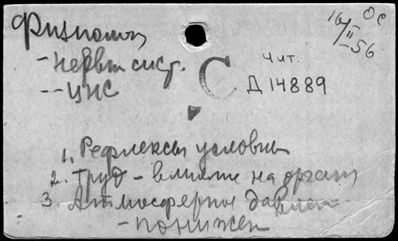 Физиология
- Нервн. сист.
-- ЦНС
С
Чит.
Д 14889
16/II-56
ОС
1. Рефлексы условны
2. Труд - влияние на организм
3. Атмосферное давлен
- понижен